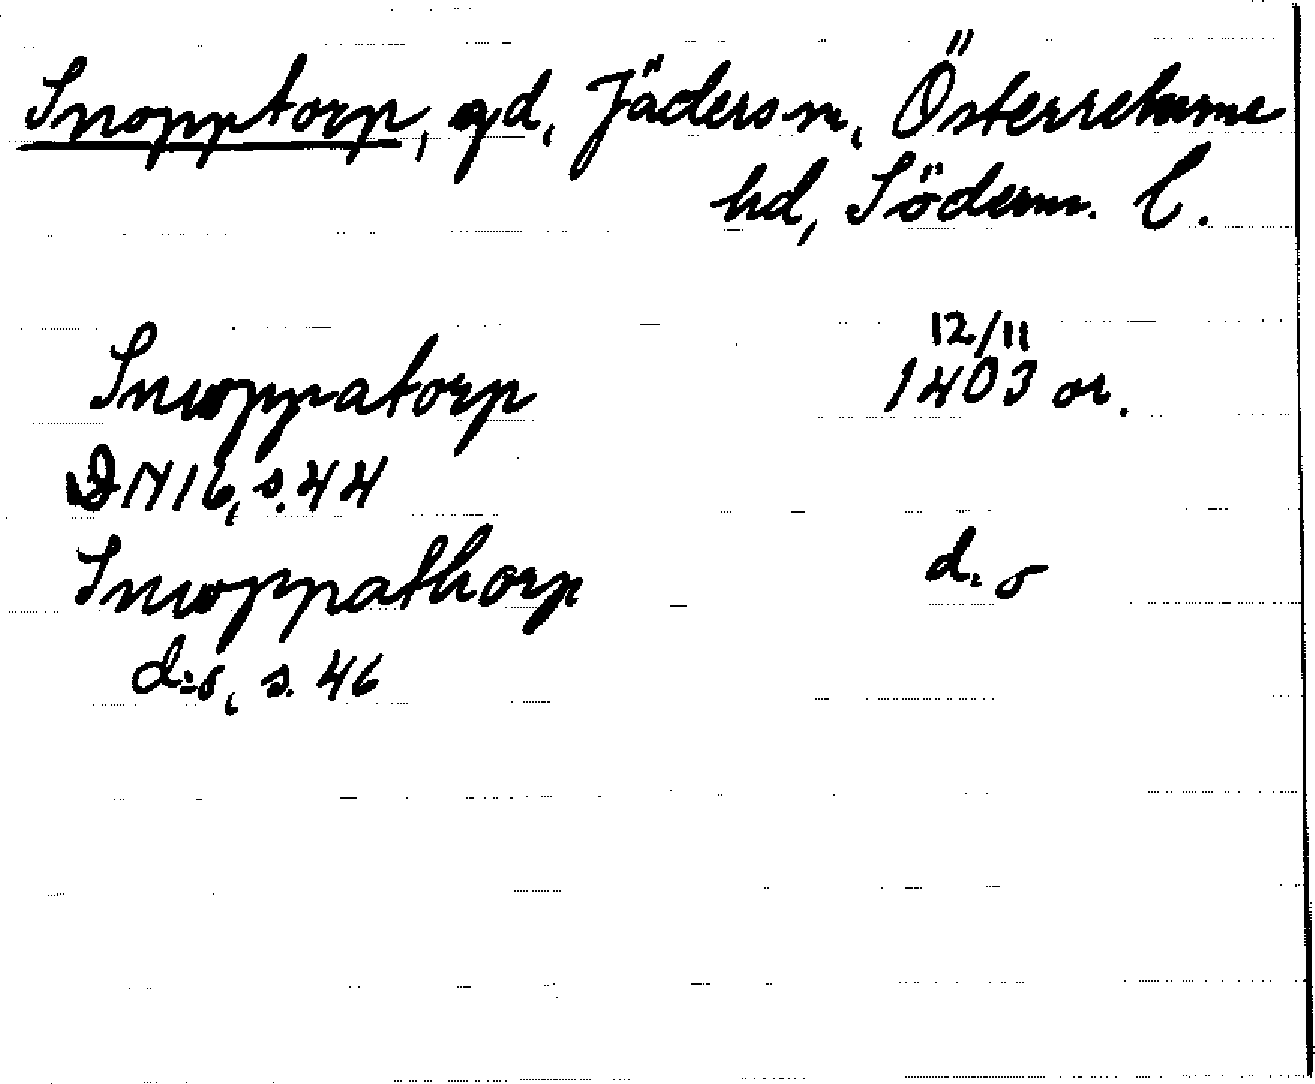 Snopptorp, gd, Jäders sn, Österrekarne
hd, Söderm. l.
Snwoppatorp 12/11 1403 or.
DN 16, s. 44
Snwoppathorp d:o
d:o, s. 46